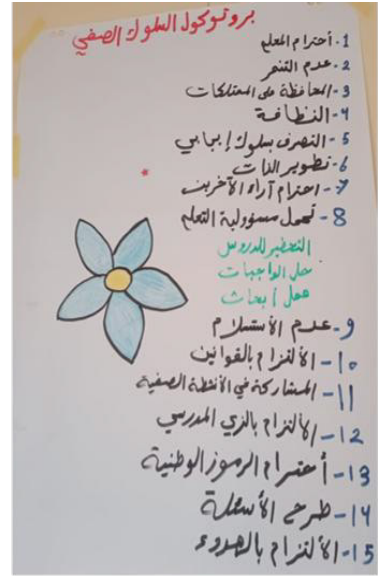 بروتوكول السلوك الصفي
1. أحترام المعلم
2. عدم التنمر
3- المحافظة على الممتلكات
4- النظافة
5- التصرف بسلوك إيجابي
6- تطوير الذات
7- احترام آراء الآخرين
8- تحمل مسؤولية التعلم
التحضير للدروس
حل الواجبات
عمل أبحاث
9- عدم الأستسلام
10- الألتزام بالقوانين
11- المشاركة في الأنشطة الصفية
12- الألتزام بالزي المدرسي
13- أحترام الرموز الوطنية
14- طرح الأسئلة
15- الألتزام بالهدوء